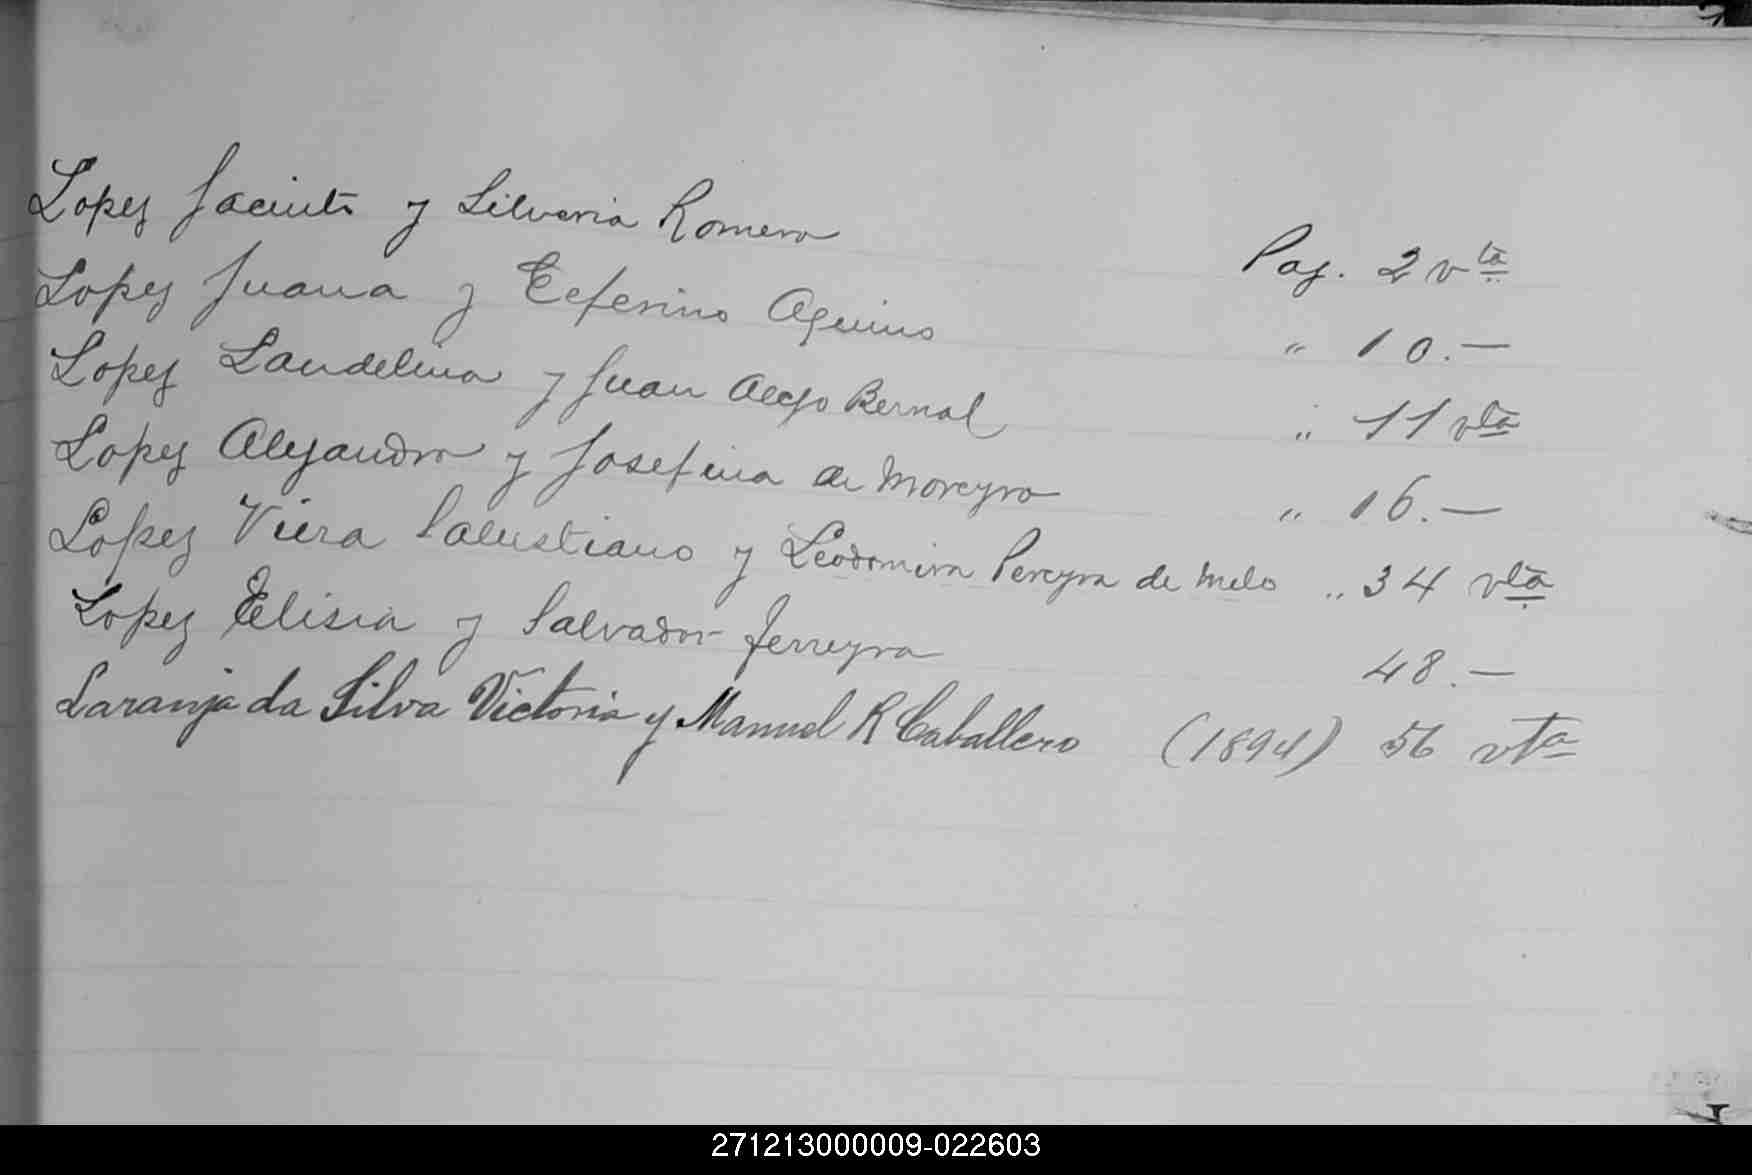 Lopez Jacinto y Silveria Romero Pag. 2 vta
Lopez Juana y Ceferino Aquino " 10.—
Lopez Laudelina y Juan Alejo Bernal " 11 vta
Lopez Alejandro y Josefina de Moreyra " 16.—
Lopez Viera Salustiano y Leodomira Pereyra de Melo " 34 vta
Lopez Elisia y Salvador Ferreyra 48.—
Laranja da Silva Victoria y Manuel R Caballero (1894) 56 vta
271213000009-022603